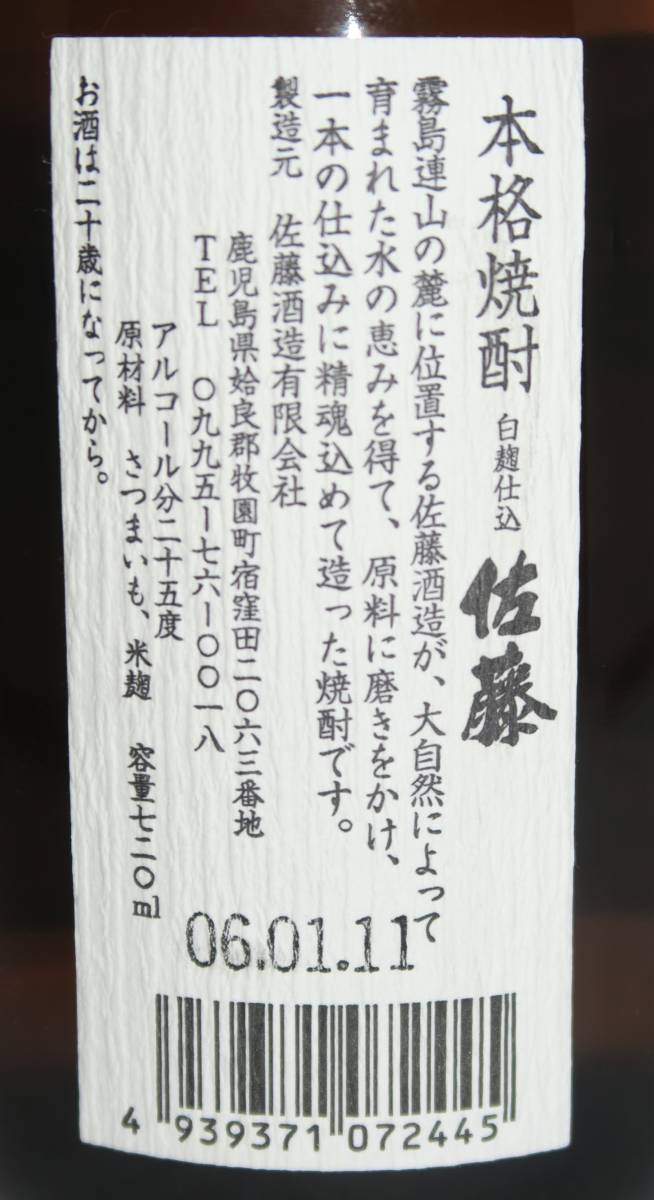 本格焼酎 白麹仕込 佐藤
霧島連山の麓に位置する佐藤酒造が、大自然によって
育まれた水の恵みを得て、原料に磨きをかけ、
一本の仕込みに精魂込めて造った焼酎です。
製造元 佐藤酒造有限会社
鹿児島県姶良郡牧園町宿窪田二〇六三番地
TEL 〇九九五ー七六ー〇〇一八
アルコール分二十五度
原材料 さつまいも、米麹 容量七二〇ml
お酒は二十歳になってから。
06.01.11
4 939371 072445